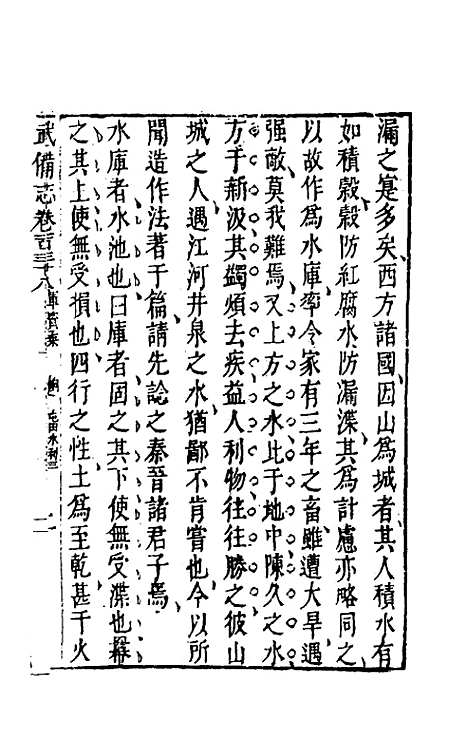 漏之寔多矣西方諸國因山爲城者其人積水有
如積穀穀防紅腐水防漏渫其爲計慮亦略同之
以故作爲水庫率令家有三年之畜雖遭大旱遇
强敵莫我難焉又上方之水比于地中陳久之水
方于新汲其蠲煩去疾益人利物往往勝之彼山
城之人遇江河井泉之水猶鄙不肯嘗也今以所
聞造作法著于篇請先諗之秦晉諸君子焉
水庫者水池也曰庫者固之其下使無受渫也冪
之其上使無受損也四行之性土爲至乾甚于火
武備志卷一百三十八 軍資乘 餉 屯田水利三 二